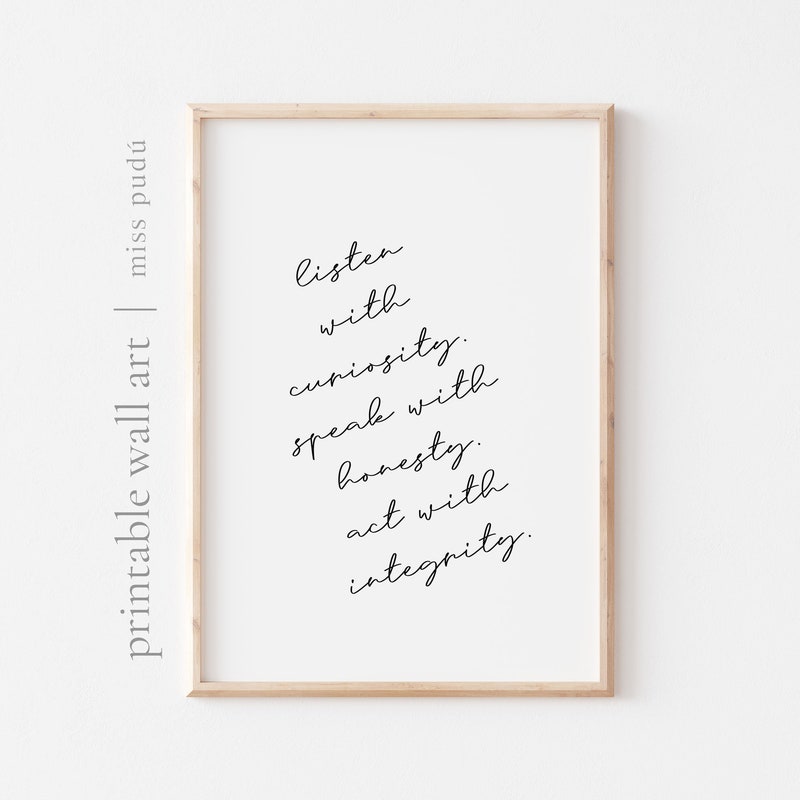 printable wall art | miss pudú
listen
with
curiosity.
speak with
honesty.
act with
integrity.